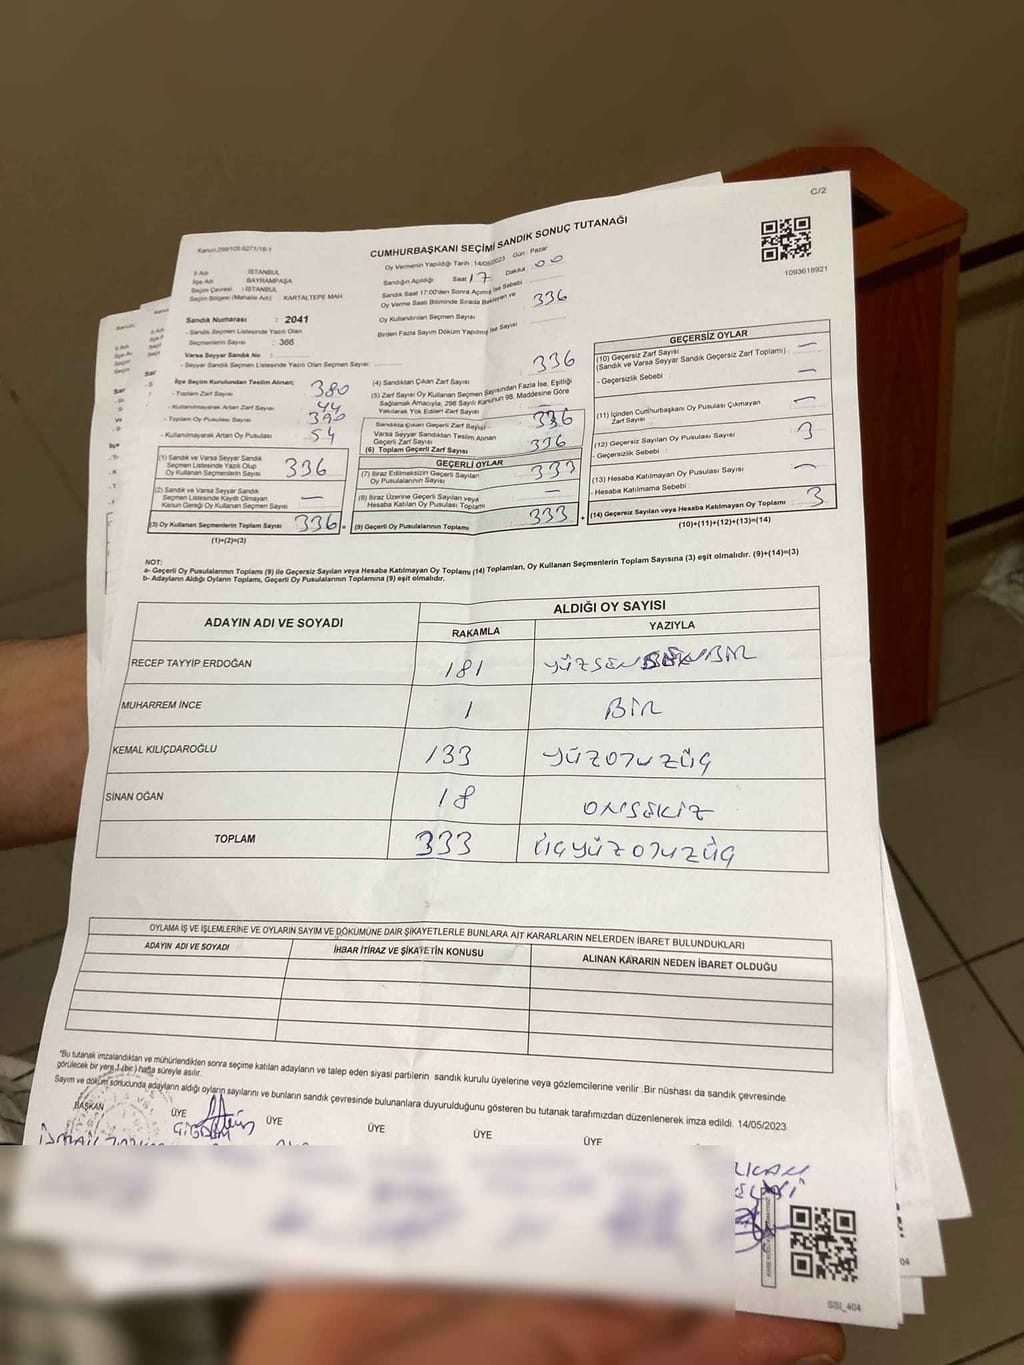 C/2
Kanun:298/105:6271/18-1
CUMHURBAŞKANI SEÇİMİ SANDIK SONUÇ TUTANAĞI
1093618921
İl Adı : İSTANBUL
İlçe Adı : BAYRAMPAŞA
Seçim Çevresi : İSTANBUL
Seçim Bölgesi (Mahalle Adı) : KARTALTEPE MAH
Oy Vermenin Yapıldığı Tarih : 14/05/2023 Gün : Pazar
Sandığın Açıldığı Saat 17 Dakika : 00
Sandık Saat 17:00'den Sonra Açılmış İse Sebebi :
Oy Verme Saati Bitiminde Sırada Bekleyen ve
Oy Kullandırılan Seçmen Sayısı 336
Birden Fazla Sayım Döküm Yapılmış İse Sayısı :
Sandık Numarası : 2041
- Sandık Seçmen Listesinde Yazılı Olan
Seçmenlerin Sayısı : 366
Varsa Seyyar Sandık No :
- Seyyar Sandık Seçmen Listesinde Yazılı Olan Seçmen Sayısı:
İlçe Seçim Kurulundan Teslim Alınan;
- Toplam Zarf Sayısı 380
- Kullanılmayarak Artan Zarf Sayısı 44
- Toplam Oy Pusulası Sayısı 390
- Kullanılmayarak Artan Oy Pusulası 54
(1) Sandık ve Varsa Seyyar Sandık
Seçmen Listesinde Yazılı Olup
Oy Kullanan Seçmenlerin Sayısı 336
(2) Sandık ve Varsa Seyyar Sandık
Seçmen Listesinde Kayıtlı Olmayan
Kanun Gereği Oy Kullanan Seçmen Sayısı —
(3) Oy Kullanan Seçmenlerin Toplam Sayısı 336 =
(1)+(2)=(3)
(4) Sandıktan Çıkan Zarf Sayısı 336
(5) Zarf Sayısı Oy Kullanan Seçmen Sayısından Fazla İse, Eşitliği
Sağlamak Amacıyla, 298 Sayılı Kanunun 98. Maddesine Göre
Yakılarak Yok Edilen Zarf Sayısı
Sandıkta Çıkan Geçerli Zarf Sayısı 336
Varsa Seyyar Sandıktan Teslim Alınan
Geçerli Zarf Sayısı
(6) Toplam Geçerli Zarf Sayısı 336
GEÇERLİ OYLAR
(7) İtiraz Edilmeksizin Geçerli Sayılan
Oy Pusulalarının Sayısı 333
(8) İtiraz Üzerine Geçerli Sayılan veya
Hesaba Katılan Oy Pusulası Toplamı —
(9) Geçerli Oy Pusulalarının Toplamı 333 +
GEÇERSİZ OYLAR
(10) Geçersiz Zarf Sayısı
(Sandık ve Varsa Seyyar Sandık Geçersiz Zarf Toplamı) : —
- Geçersizlik Sebebi : —
(11) İçinden Cumhurbaşkanı Oy Pusulası Çıkmayan
Zarf Sayısı —
(12) Geçersiz Sayılan Oy Pusulası Sayısı 3
- Geçersizlik Sebebi :
(13) Hesaba Katılmayan Oy Pusulası Sayısı —
- Hesaba Katılmama Sebebi :
(14) Geçersiz Sayılan veya Hesaba Katılmayan Oy Toplamı : 3
(10)+(11)+(12)+(13)=(14)
NOT:
a- Geçerli Oy Pusulalarının Toplamı (9) ile Geçersiz Sayılan veya Hesaba Katılmayan Oy Toplamı (14) Toplamları, Oy Kullanan Seçmenlerin Toplam Sayısına (3) eşit olmalıdır. (9)+(14)=(3)
b- Adayların Aldığı Oyların Toplamı, Geçerli Oy Pusulalarının Toplamına (9) eşit olmalıdır.
ADAYIN ADI VE SOYADI ALDIĞI OY SAYISI
RAKAMLA YAZIYLA
RECEP TAYYİP ERDOĞAN 181 YÜZSEKSENBİR
MUHARREM İNCE 1 BİR
KEMAL KILIÇDAROĞLU 133 YÜZOTUZÜÇ
SİNAN OĞAN 18 ONSEKİZ
TOPLAM 333 ÜÇYÜZOTUZÜÇ
OYLAMA İŞ VE İŞLEMLERİNE VE OYLARIN SAYIM VE DÖKÜMÜNE DAİR ŞİKAYETLERLE BUNLARA AİT KARARLARIN NELERDEN İBARET BULUNDUKLARI
ADAYIN ADI VE SOYADI İHBAR İTİRAZ VE ŞİKAYETİN KONUSU ALINAN KARARIN NEDEN İBARET OLDUĞU
"Bu tutanak imzalandıktan ve mühürlendikten sonra seçime katılan adayların ve talep eden siyasi partilerin sandık kurulu üyelerine veya gözlemcilerine verilir .Bir nüshası da sandık çevresinde
görülecek bir yere 1 (bir ) hafta süreyle asılır.
Sayım ve döküm sonucunda adayların aldığı oyların sayılarını ve bunların sandık çevresinde bulunanlara duyurulduğunu gösteren bu tutanak tarafımızdan düzenlenerek imza edildi. 14/05/2023
BAŞKAN ÜYE ÜYE ÜYE ÜYE ÜYE
SSI_404